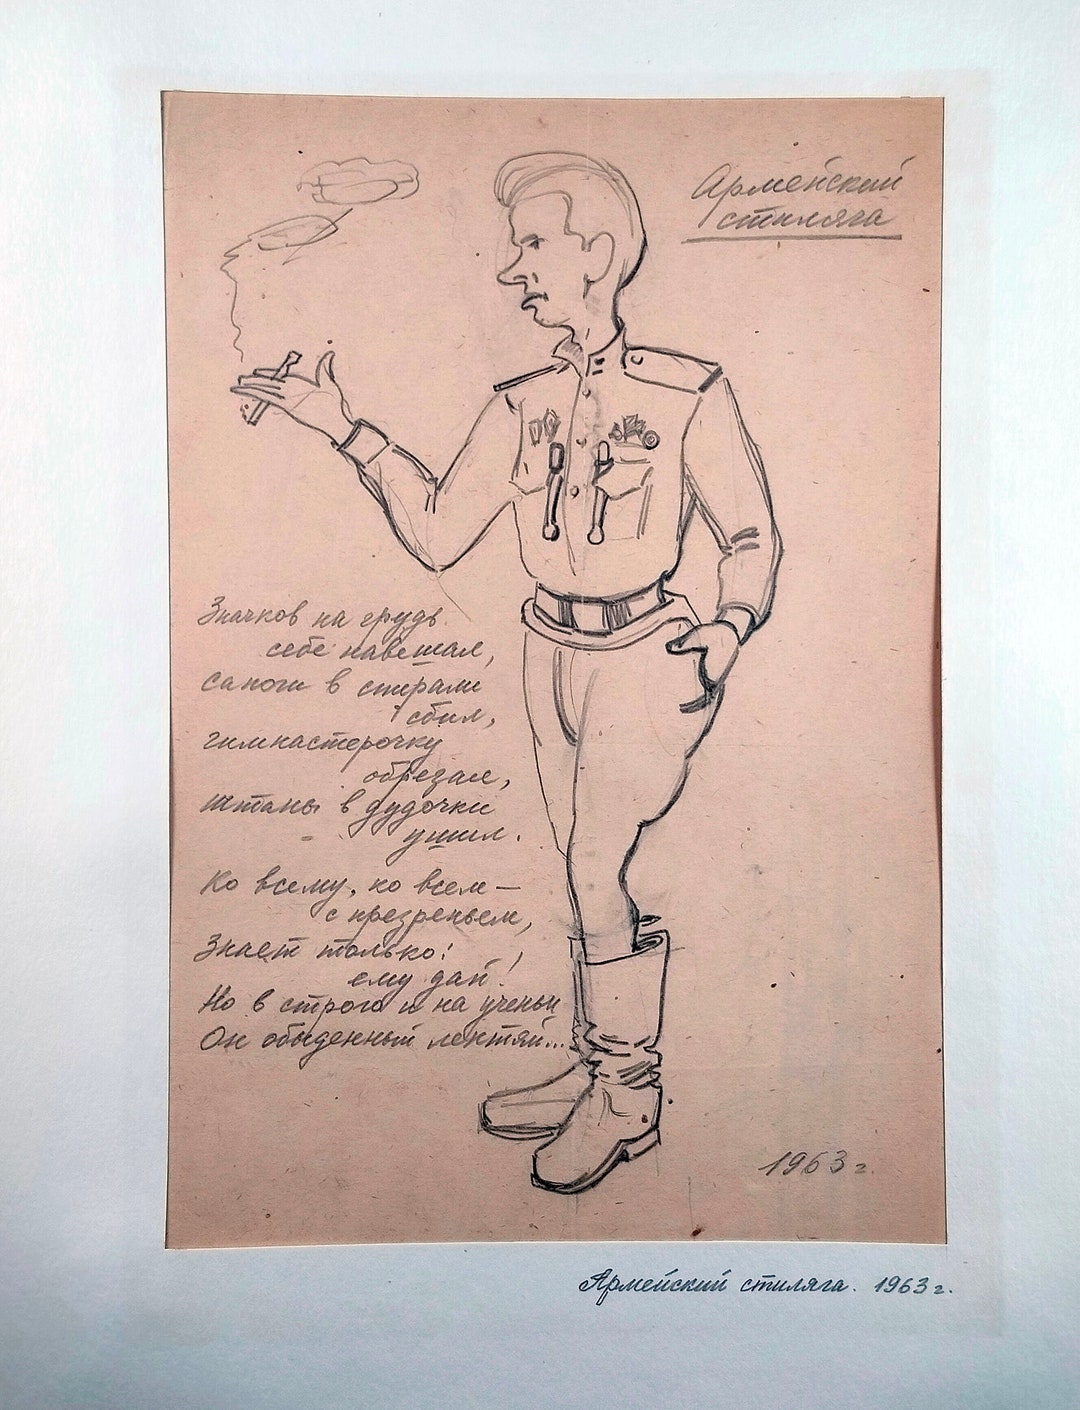 Армейский
стиляга
Значков на грудь
себе навешал,
Сапоги в спирали
сбил,
гимнастерочку
обрезал,
штаны в дудочки
ушил.
Ко всему, ко всем —
с презреньем,
Знает только:
ему дай!
Но в строю и на ученьи
Он обыденный лентяй...
1963 г.
Армейский стиляга. 1963 г.